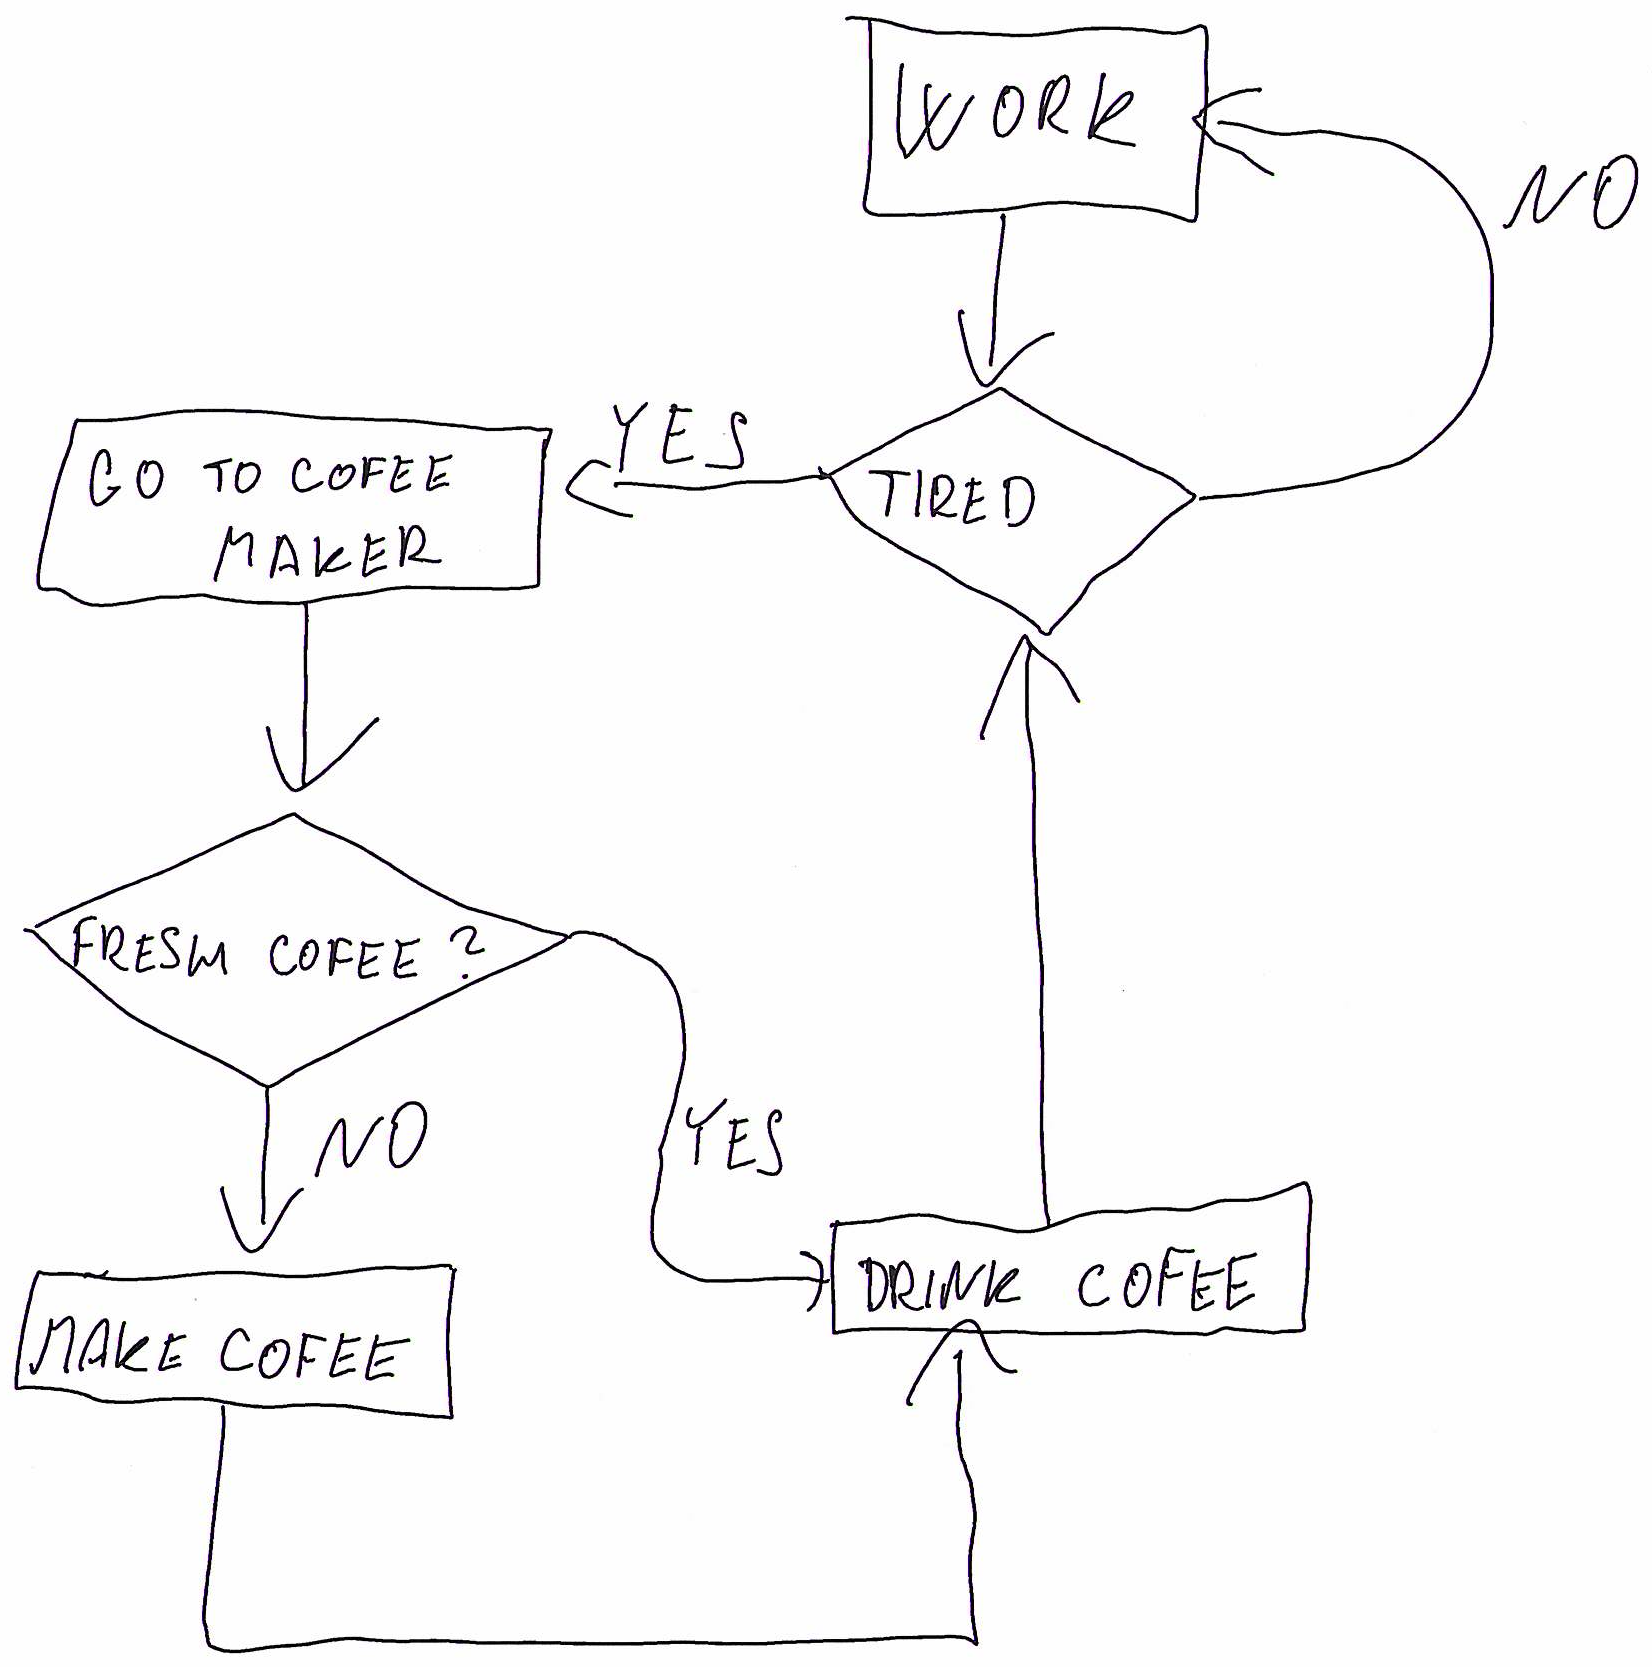 WORK
NO
YES
TIRED
GO TO COFEE
MAKER
FRESH COFEE ?
NO
YES
MAKE COFEE
DRINK COFEE